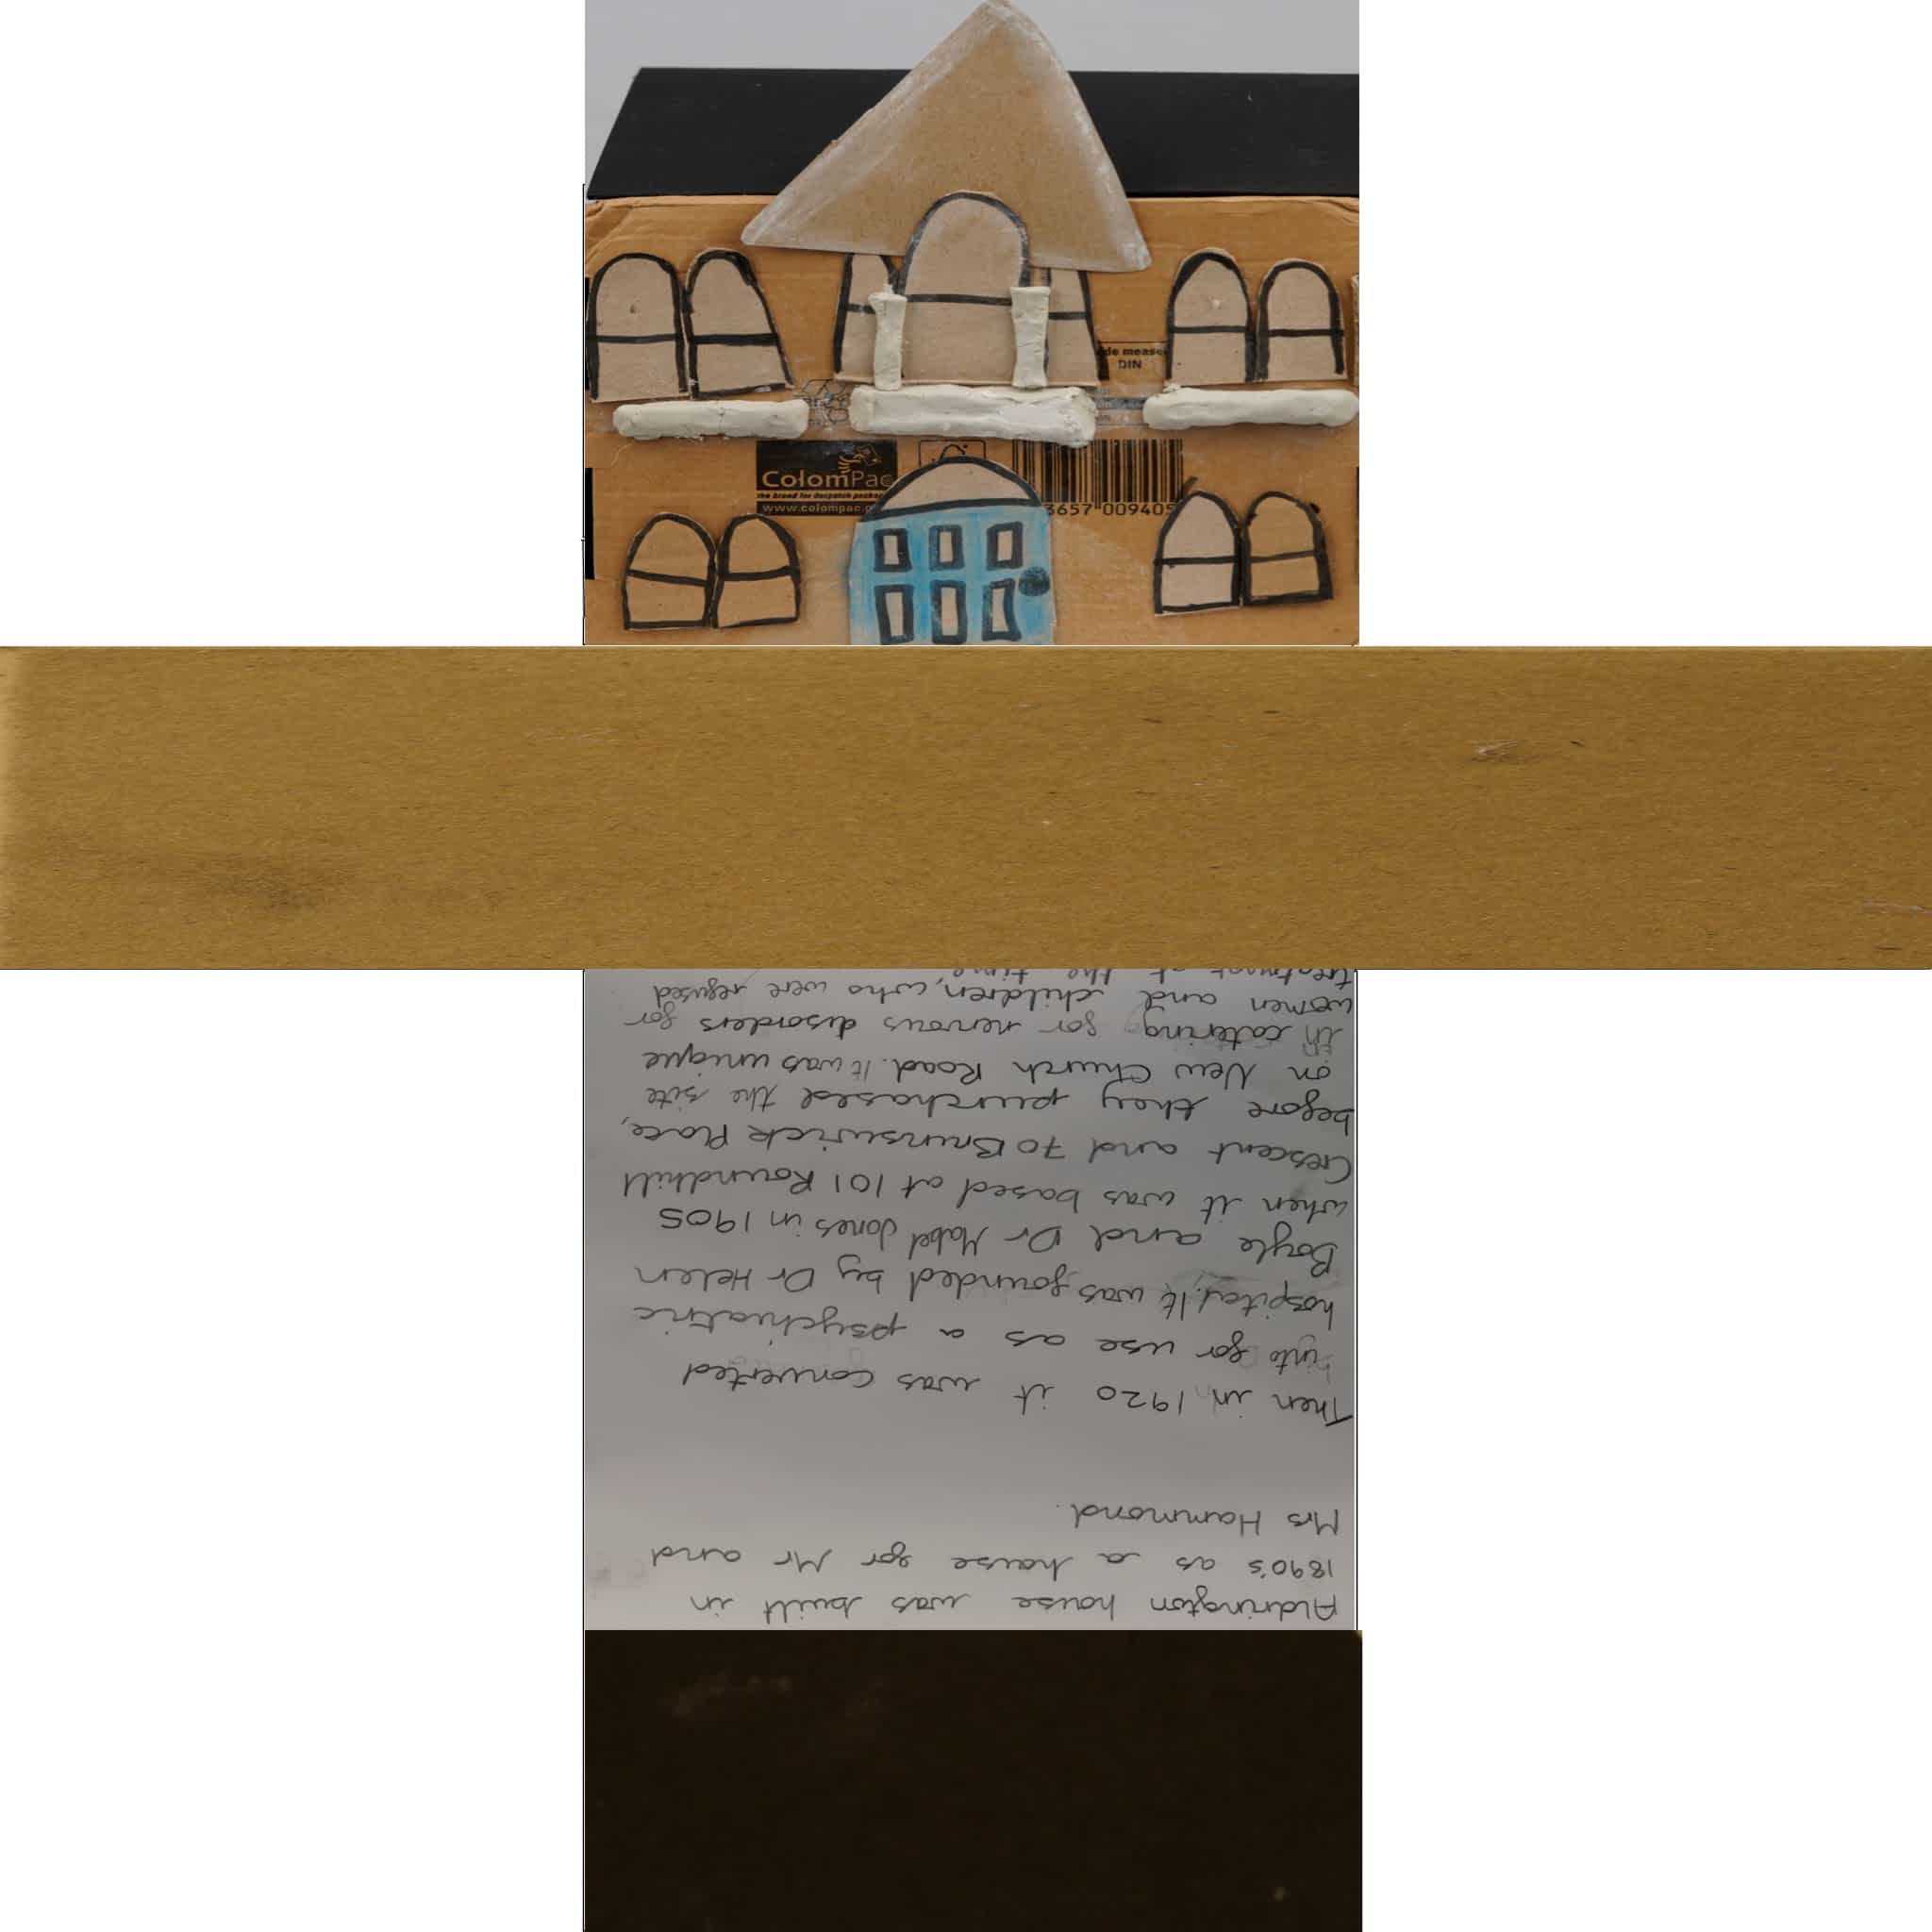 Aldrington house was built in
1890's as a house for Mr and
Mrs Hammond.
Then in 1920 it was converted
into for use as a psychiatric
hospital. It was founded by Dr Helen
Boyle and Dr Mabel Jones in 1905
when it was based at 101 Roundhill
Crescent and 70 Brunswick Place,
before they purchased the site
on New Church Road. It was unique
in catering for nervous disorders for
women and children, who were refused
treatment at the time
www.colompac.
the brand for despatch
ColomPac
DIN